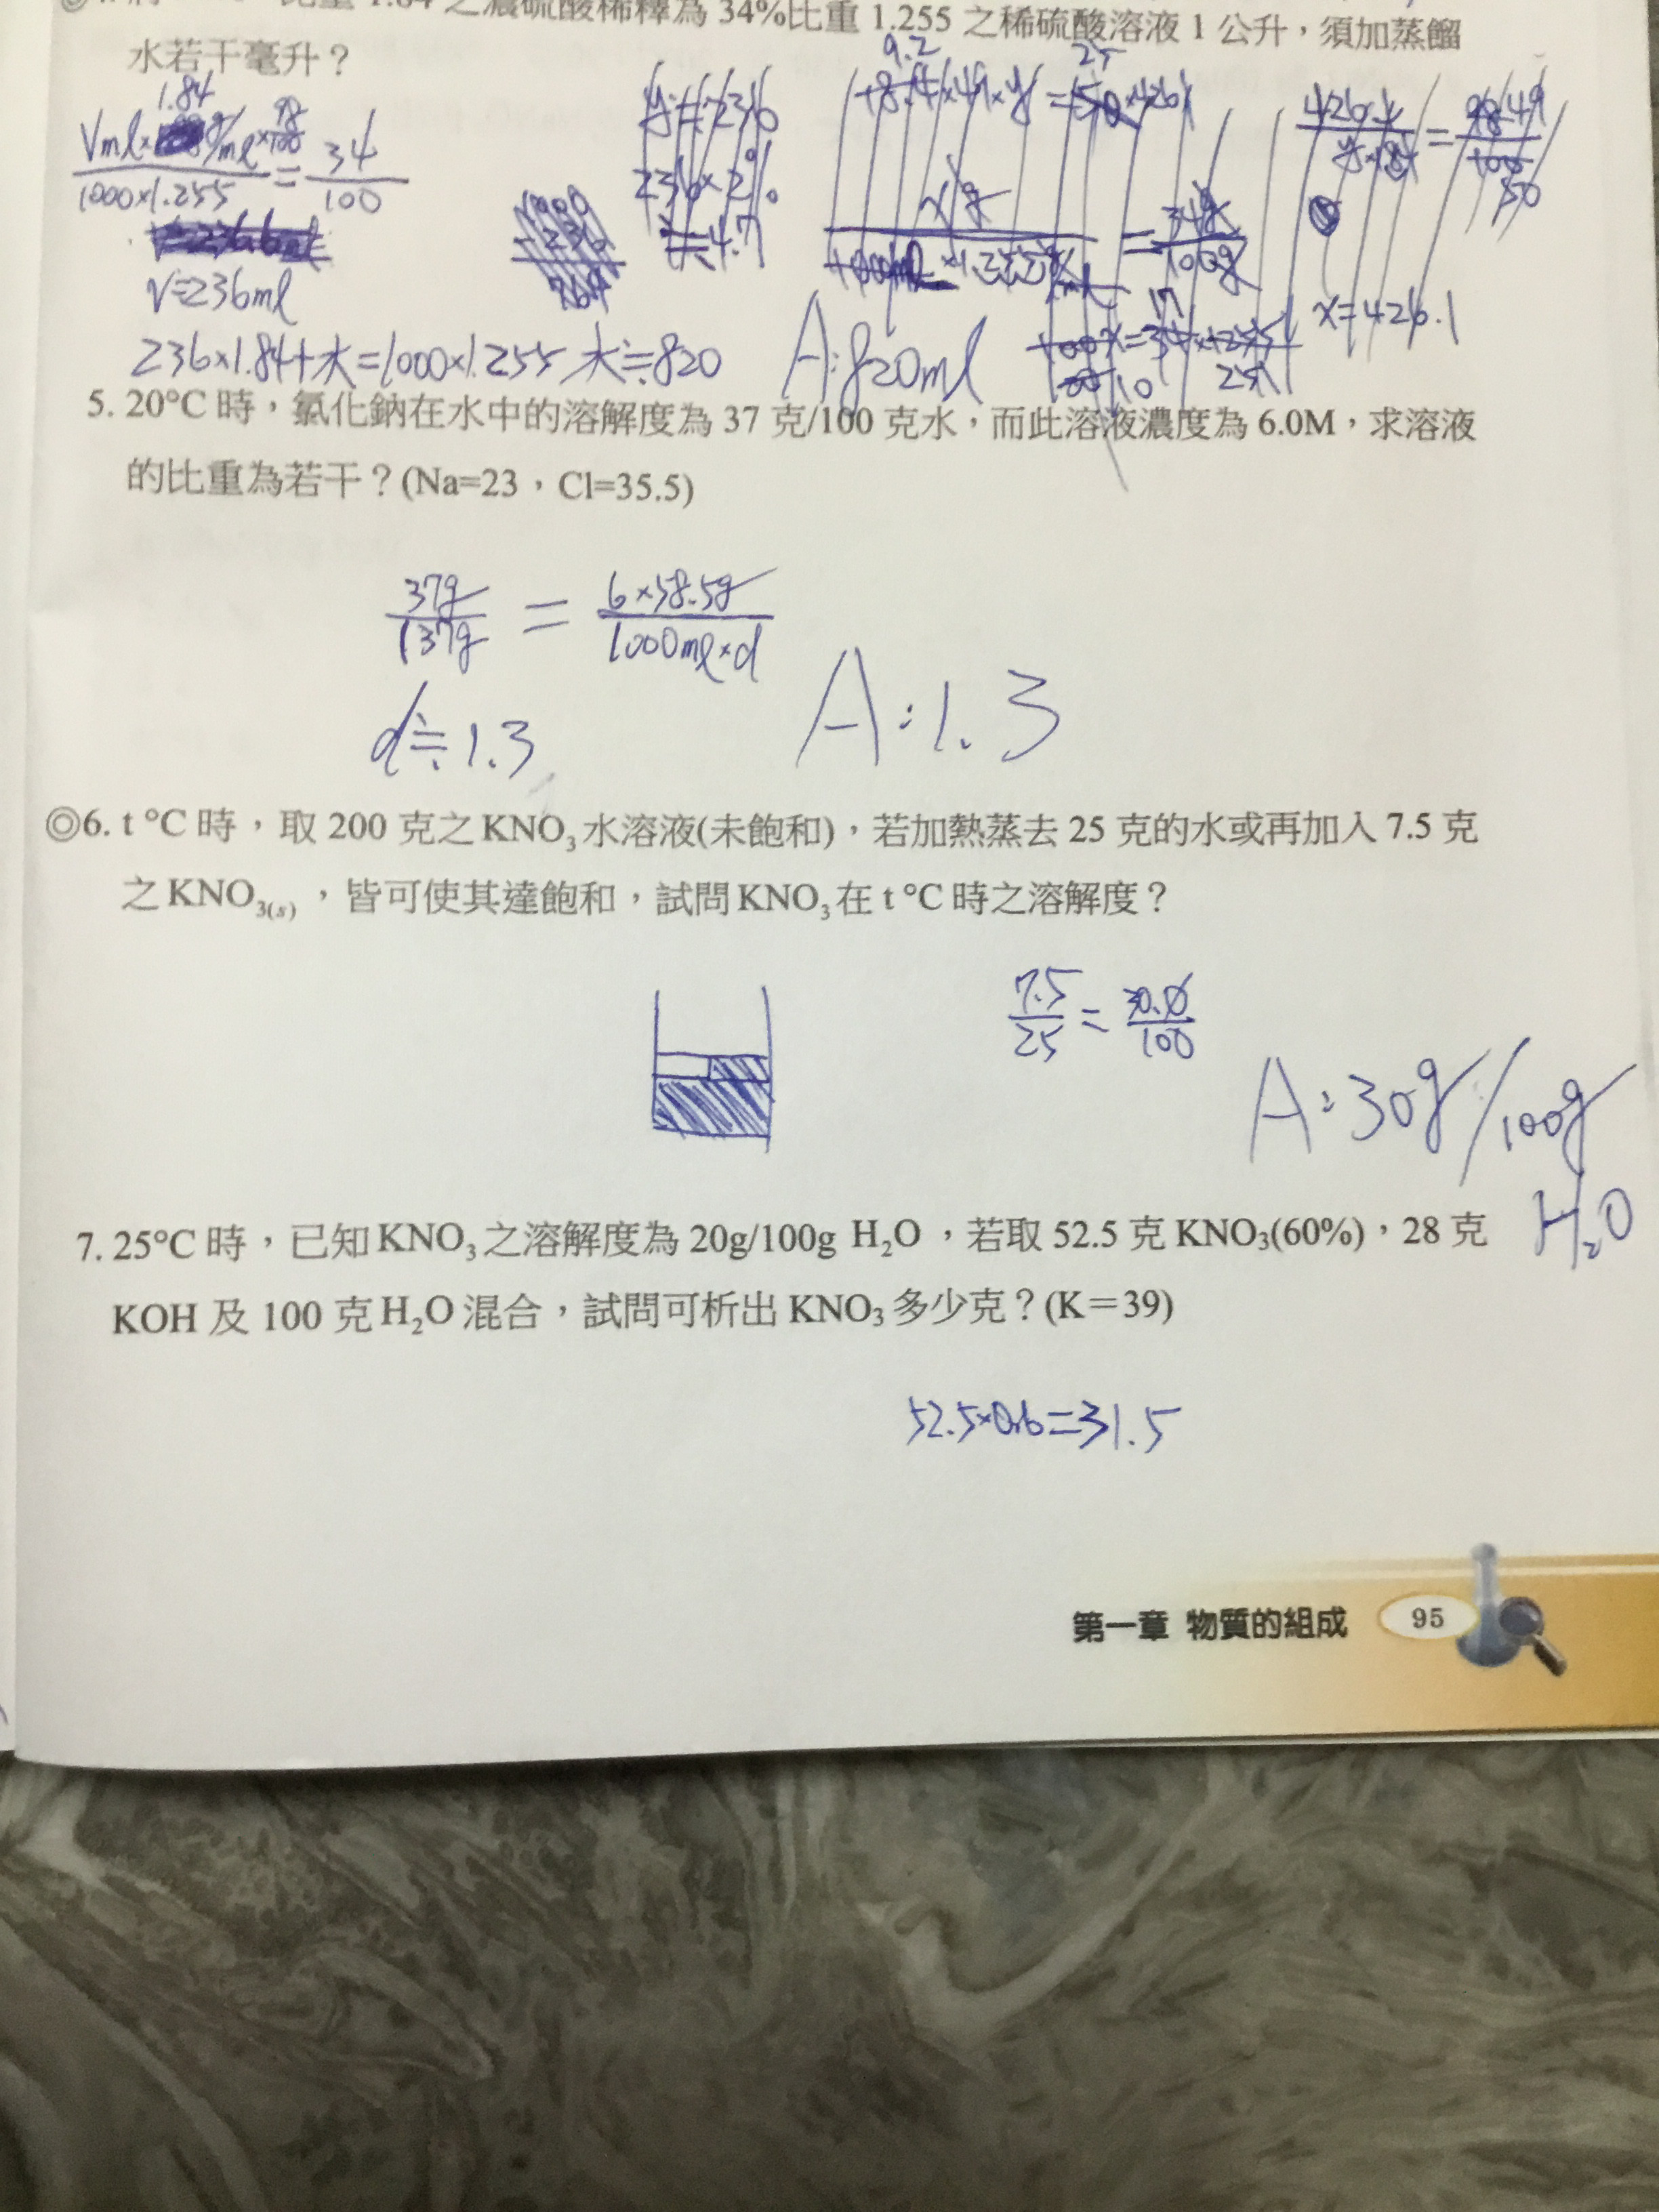 比重 1.84 之濃硫酸稀釋為 34%比重 1.255 之稀硫酸溶液 1 公升，須加蒸餾
水若干毫升？
1.84
Vml× g/ml×98/100 / 1000×1.255 = 34/100
V≒236ml
y≒236
236×2%
≒4.7
9.2 25
18.4×49×y=50×426.1
xg / 1000ml×1.255g/ml = 34g/100g
17
x=426.1
236×1.84+水=1000×1.255 水≒820 A:820ml
5. 20°C 時，氯化鈉在水中的溶解度為 37 克/100 克水，而此溶液濃度為 6.0M，求溶液
的比重為若干？(Na=23，Cl=35.5)
37g/137g = 6×58.5g/1000ml×d
d≒1.3 A:1.3
◎6. t °C 時，取 200 克之 KNO₃ 水溶液(未飽和)，若加熱蒸去 25 克的水或再加入 7.5 克
之 KNO₃₍ₛ₎，皆可使其達飽和，試問 KNO₃ 在 t °C 時之溶解度？
7.5/25 = 30.0/100
A:30g/100g
H₂O
7. 25°C 時，已知 KNO₃ 之溶解度為 20g/100g H₂O，若取 52.5 克 KNO₃(60%)，28 克
KOH 及 100 克 H₂O 混合，試問可析出 KNO₃ 多少克？(K＝39)
52.5×0.6=31.5
第一章 物質的組成 95